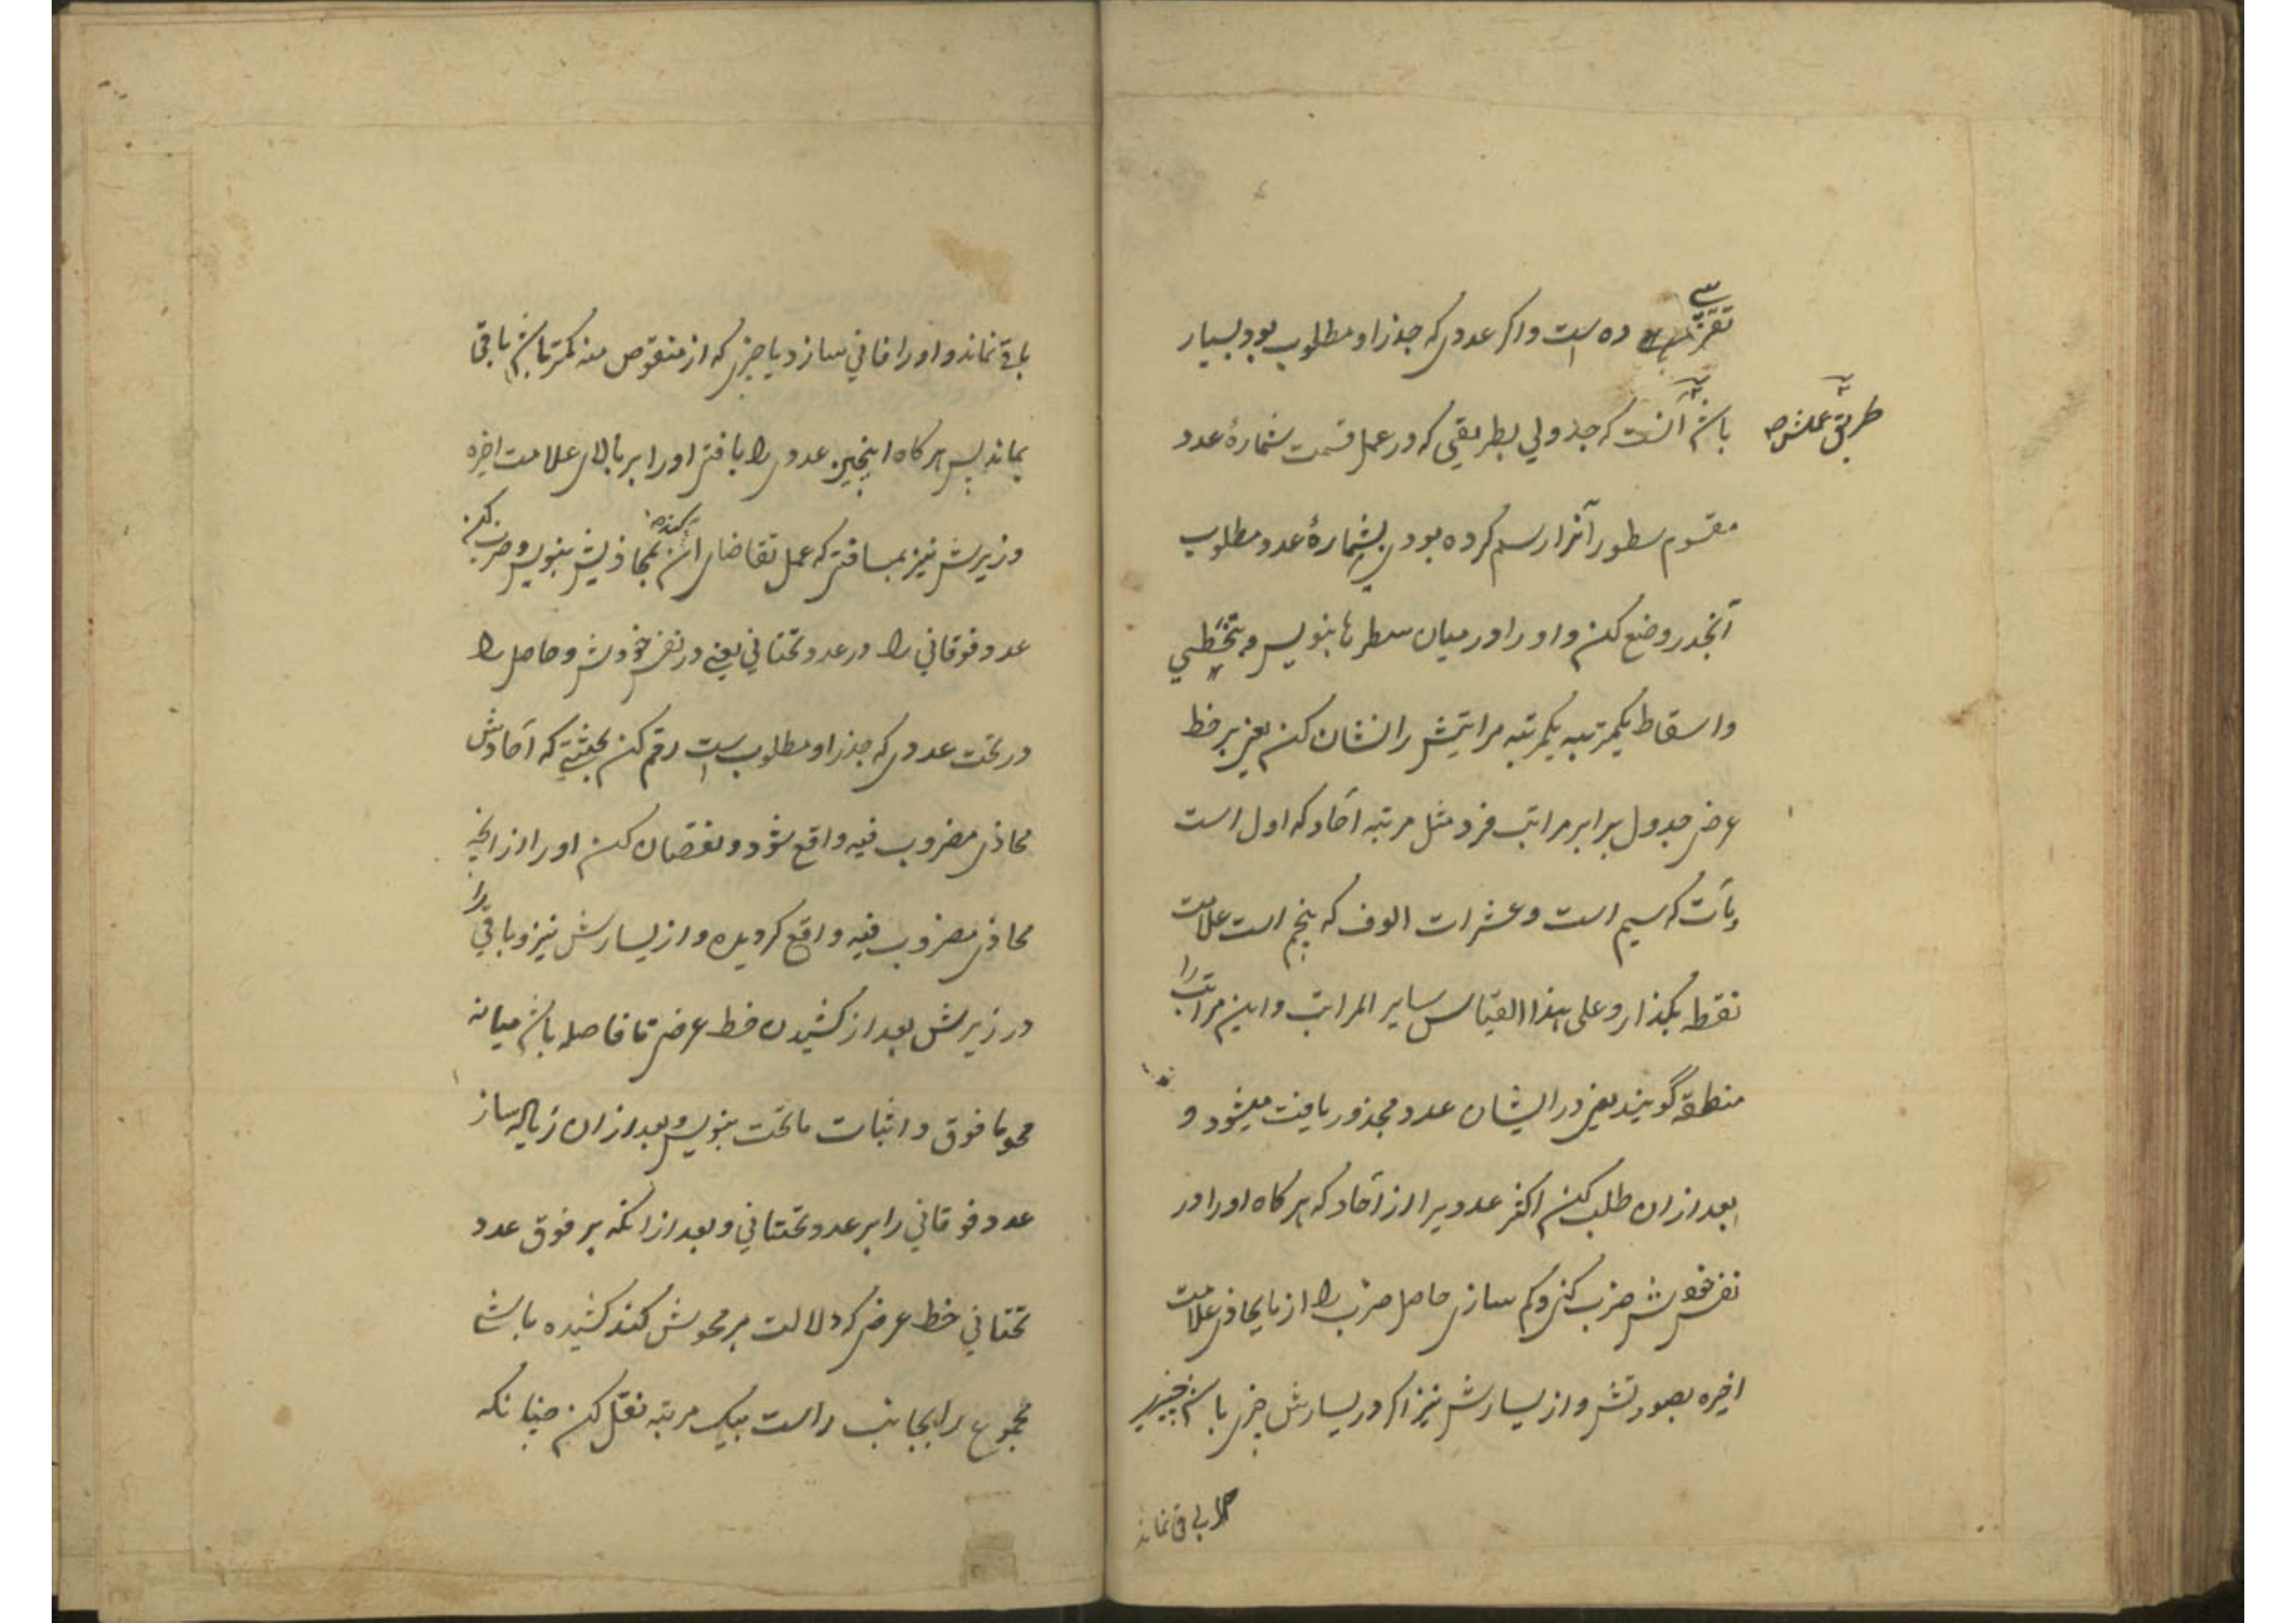 تقریبی ده است و اگر عددی که جذر او مطلوب بود بسیار
طریق عملش
باشد آنست که جدولی بطریقی که در عمل قسمت شمارهٔ عدد
مقسوم سطور آنرا رسم کرده بودی بشمارهٔ عدد مطلوب
آنجذر وضع کن و او را در میان سطرها بنویس و بتخطی
و اسقاط یکمرتبه یکمرتبه مراتبش را نشان کن یعنی بر خط
عرض جدول برابر مراتب فرد مثل مرتبه آحاد که اول است
و مآت که سیم است و عشرات الوف که پنجم است علامت
نقطه بگذار و علی هذا القیاس سایر المراتب و این مراتب را
منطقه گویند یعنی در ایشان عدد مجذور یافت میشود و
بعد از ان طلب کن اکثر عددیرا از آحاد که هر گاه او را در
نفس خودش ضرب کنی و کم سازی حاصل ضرب را از مایحاذی علامت
اخیره بصورتش و از یسارش نیز اگر در یسارش چیزی باشد چیزی
باقی نماند
باقی نماند و او را فانی سازد یا چیزی که از منقوص منه کمتر باشد باقی
بماند پس هر گاه اینچنین عددی را یافتی او را بر بالای علامت اخیره
و زیرش نیز بمسافتی که عمل تقاضای آن کند بمحاذیش بنویس و ضرب کن
عدد فوقانی را در عدد تحتانی یعنی در نفس خودش و حاصل را
در تحت عددی که جذر او مطلوب است رقم کن بحیثیتی که آحادش
محاذی مضروب فیه واقع شود و نقصان کن او را از انچه
محاذی مضروب فیه واقع گردیده و از یسارش نیز و باقی را
در زیرش بعد از کشیدن خط عرضی تا فاصله باشد میانه
محو ما فوق و اثبات ما تحت بنویس و بعد از ان زیاله ساز
عدد فوقانی را بر عدد تحتانی و بعد از انکه بر فوق عدد
تحتانی خط عرضی که دلالت بر محوش کند کشیده باشی
مجموع را بجانب راست بیک مرتبه نقل کن چنانکه